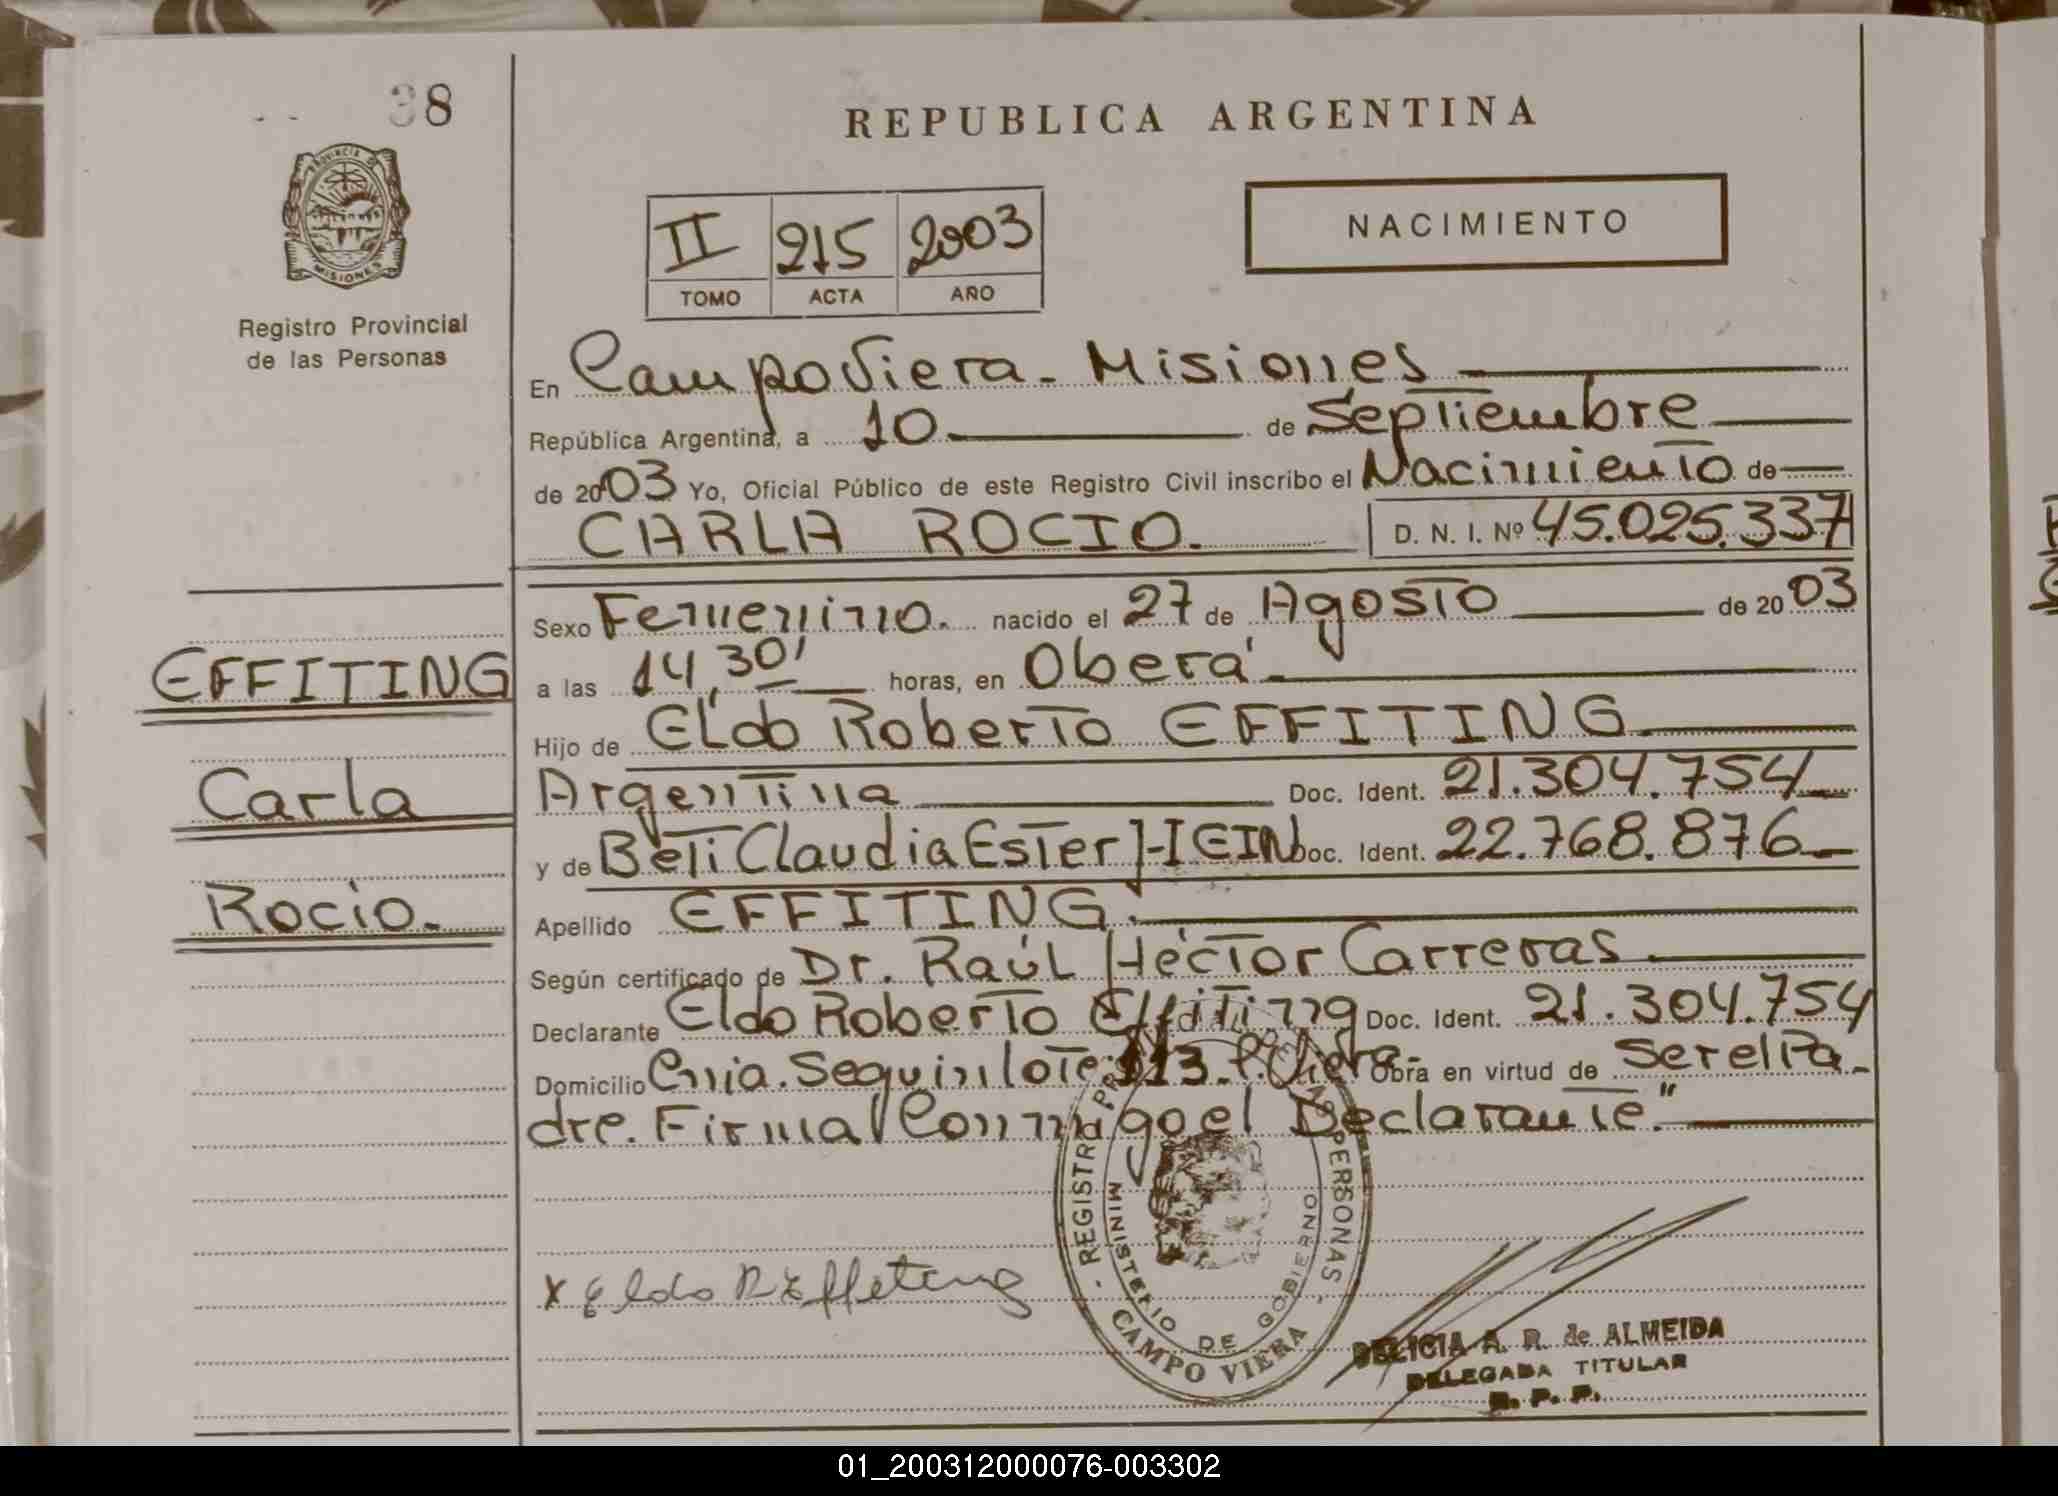 38
REPUBLICA ARGENTINA
PROVINCIA DE
MISIONES
Registro Provincial
de las Personas
II 215 2003
TOMO ACTA AÑO
NACIMIENTO
En Campo Viera - Misiones
República Argentina, a 10 de Septiembre
de 2003 Yo, Oficial Público de este Registro Civil inscribo el Nacimiento de
CARLA ROCIO. D. N. I. Nº 45.025.337
Sexo Femenino. nacido el 27 de Agosto de 20 03
a las 14,30' horas, en Oberá.
Hijo de Eldo Roberto EFFITING
Argentina Doc. Ident. 21.304.754
y de Beti Claudia Ester HEIN Doc. Ident. 22.768.876
Apellido EFFITING.
Según certificado de Dr. Raúl Héctor Carreras
Declarante Eldo Roberto Effiting Doc. Ident. 21.304.754
Domicilio Cnia. Seguin lote 113. C. Viera. Obra en virtud de Ser el Pa-
dre. Firma Conmigo el Declarante."
EFFITING
Carla
Rocio.
x Eldo R Effiting
REGISTRO PROVINCIAL DE LAS PERSONAS
MINISTERIO DE GOBIERNO
CAMPO VIERA
DELICIA A. R. de ALMEIDA
DELEGADA TITULAR
R. P. P.
01_200312000076-003302